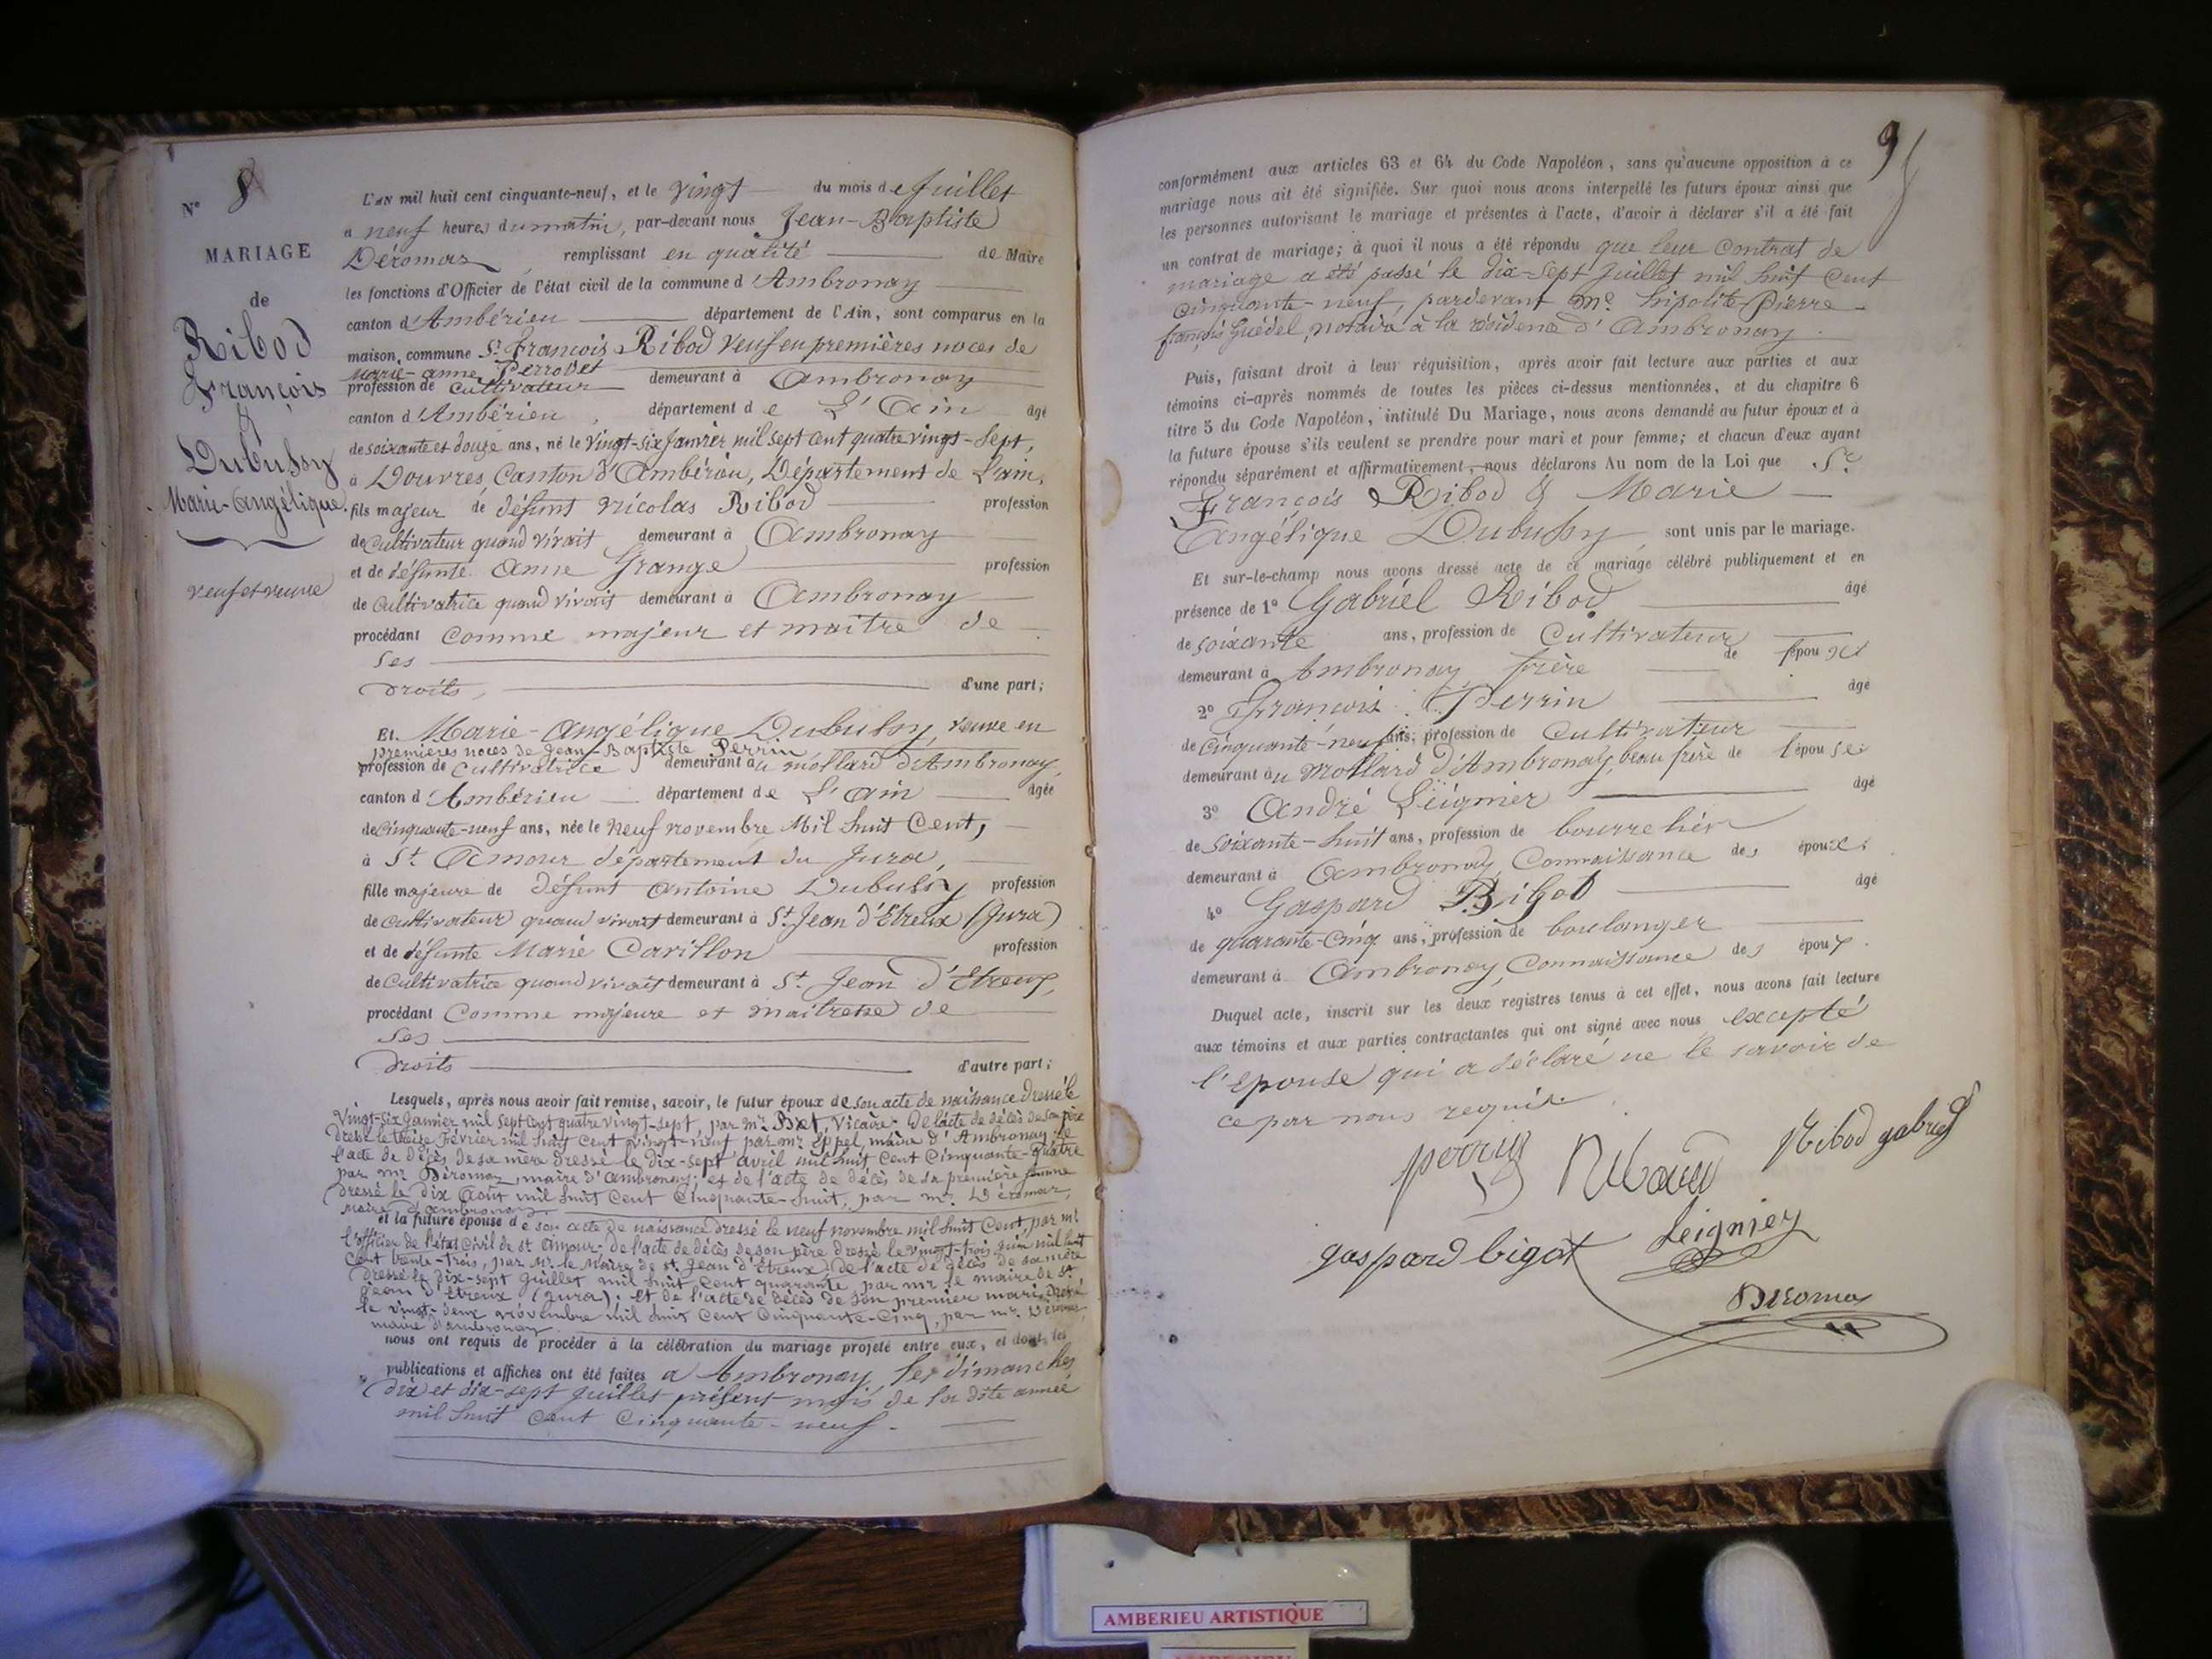 N° 8
MARIAGE
de
Ribod
François
&
Dubussy
Marie-Angélique.
veuf et veuve
L'AN mil huit cent cinquante-neuf, et le vingt du mois de Juillet
à neuf heures du matin, par-devant nous Jean-Baptiste
Déromas, remplissant en qualité de Maire
les fonctions d'Officier de l'état civil de la commune d'Ambronay
canton d'Ambérieu département de l'Ain, sont comparus en la
maison commune Sr. François Ribod veuf en premières noces de
Marie-anne Perrodet
profession de Cultivateur demeurant à Ambronay
canton d'Ambérieu, département de L'Ain âgé
de soixante et douze ans, né le vingt-six Janvier mil sept cent quatre vingt-sept,
à Douvres, Canton d'Ambérieu, Département de L'ain,
fils majeur de défunt Nicolas Ribod profession
de Cultivateur quand vivait demeurant à Ambronay
et de défunte Anne Grange profession
de Cultivatrice quand vivait demeurant à Ambronay
procédant Comme majeur et maître de
ses
droits, d'une part;
Et Marie-Angélique Dubussy, veuve en
premières noces de Jean-Baptiste Perrin
profession de Cultivatrice demeurant au mollard d'Ambronay,
canton d'Ambérieu département de L'ain âgée
de Cinquante-neuf ans, née le neuf novembre Mil huit Cent,
à St. Amour département du Jura,
fille majeure de défunt Antoine Dubussy profession
de Cultivateur quand vivait demeurant à St. Jean d'Etreux (Jura)
et de défunte Marie Carillon profession
de Cultivatrice quand vivait demeurant à St. Jean d'Etreux,
procédant Comme majeure et maitresse de
ses
droits d'autre part;
Lesquels, après nous avoir fait remise, savoir, le futur époux de son acte de naissance dressé le
vingt-six Janvier mil sept cent quatre vingt-sept, par mr. Vicaire. De l'acte de décès de son père
dressé le treize février mil huit cent vingt-neuf par mr. Eppel, maire d'Ambronay; de
l'acte de décès de sa mère dressé le dix-sept avril mil huit Cent Cinquante-quatre
par mr. Déromas, maire d'Ambronay; et de l'acte de décès de sa première femme
dressé le dix Août mil huit Cent Cinquante-huit, par mr. Déromas,
Maire d'Ambronay
et la future épouse de son acte de naissance dressé le neuf novembre mil huit Cent, par mr.
l'officier de l'état Civil de St Amour; de l'acte de décès de son père dressé le vingt-trois juin mil huit
Cent trente-trois, par Mr. le Maire de St. Jean d'Etreux; de l'acte de décès de sa mère
dressé le dix-sept Juillet mil huit Cent quarante, par mr le maire de St.
Jean d'Etreux (Jura); et de l'acte de décès de son premier mari dressé
le vingt-deux novembre mil huit Cent Cinquante-Cinq, par mr. Déromas,
maire d'Ambronay
nous ont requis de procéder à la célébration du mariage projeté entre eux, et dont les
publications et affiches ont été faites à Ambronay les dimanches
dix et dix-sept Juillet présent mois de la dite année
mil huit Cent Cinquante-neuf.
9
conformément aux articles 63 et 64 du Code Napoléon, sans qu'aucune opposition à ce
mariage nous ait été signifiée. Sur quoi nous avons interpellé les futurs époux ainsi que
les personnes autorisant le mariage et présentes à l'acte, d'avoir à déclarer s'il a été fait
un contrat de mariage; à quoi il nous a été répondu que leur Contrat de
mariage a été passé le dix-sept Juillet mil huit Cent
Cinquante-neuf, pardevant Me. hipolite-Pierre-
françois Guédel, notaire à la résidence d'Ambronay.
Puis, faisant droit à leur réquisition, après avoir fait lecture aux parties et aux
témoins ci-après nommés de toutes les pièces ci-dessus mentionnées, et du chapitre 6
titre 5 du Code Napoléon, intitulé Du Mariage, nous avons demandé au futur époux et à
la future épouse s'ils veulent se prendre pour mari et pour femme; et chacun d'eux ayant
répondu séparément et affirmativement, nous déclarons Au nom de la Loi que Sr.
François Ribod & Marie
Angélique Dubussy, sont unis par le mariage.
Et sur-le-champ nous avons dressé acte de ce mariage célébré publiquement et en
présence de 1° Gabriel Ribod âgé
de soixante ans, profession de Cultivateur
demeurant à Ambronay, frère de l'époux
2° François Perrin âgé
de Cinquante-neuf ans, profession de Cultivateur
demeurant au Mollard d'Ambronay, beau frère de l'épouse
3° André Leignier âgé
de soixante-huit ans, profession de bourrelier
demeurant à Ambronay, Connaissance des époux.
4° Gaspard Bigot âgé
de quarante-Cinq ans, profession de boulanger
demeurant à Ambronay, Connaissance des époux.
Duquel acte, inscrit sur les deux registres tenus à cet effet, nous avons fait lecture
aux témoins et aux parties contractantes qui ont signé avec nous excepté
l'Epouse qui a déclaré ne le savoir de
ce par nous requise.
perrin Ribaud Ribod gabriel
gaspard bigot Leignier
Déromas
AMBERIEU ARTISTIQUE